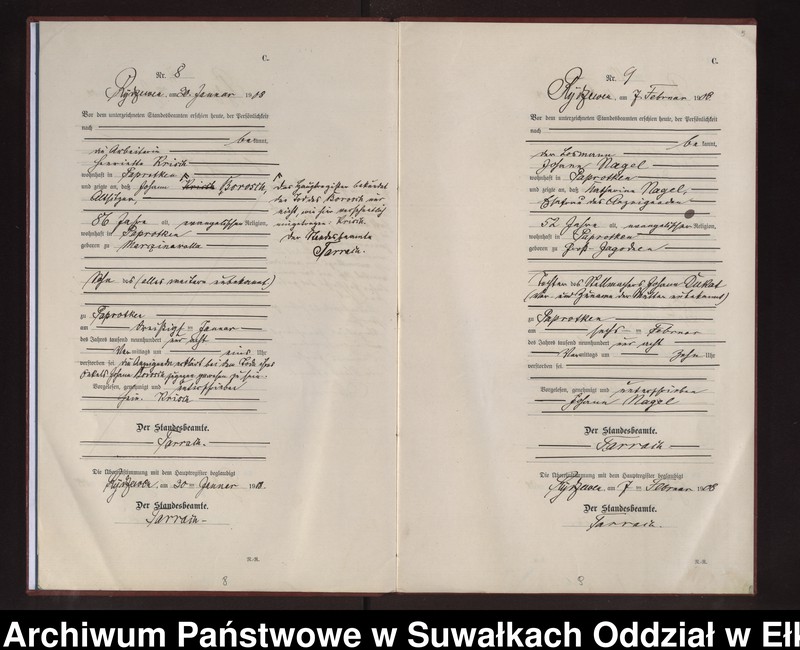 C.
Nr. 8
am 30. Januar 1908
Vor dem unterzeichneten Standesbeamten erschien heute, der Persönlichkeit
nach
bekannt,
die Arbeiterin
Henriette Krisch
wohnhaft in Paprotken
und zeigte an, daß Johann Krisch Borosch,
Altsitzer,
86 Jahre alt, evangelischer Religion,
wohnhaft in Paprotken
geboren zu
Sohn des (alles weitere unbekannt)
zu Paprotken
am dreißigsten Januar
des Jahres tausend neunhundert und acht
Vormittags um eins Uhr
verstorben sei. die Anzeigende erklärt bei dem Tode ihres
Johann Borosch zugegen gewesen zu sein
Vorgelesen, genehmigt und unterschrieben
Krisch
Der Standesbeamte.
Tarrach.
Die Übereinstimmung mit dem Hauptregister beglaubigt
am 30ten Januar 1908.
Der Standesbeamte.
Tarrach
N.-R.
8
Das Hauptregister bekundet
den Tod des Borosch
nicht, wie hier versehentlich
eingetragen: Krisch.
Der Standesbeamte
Tarrach.
C.
Nr. 9
am 7. Februar 1908
Vor dem unterzeichneten Standesbeamten erschien heute, der Persönlichkeit
nach
bekannt,
der Losmann
Johann Nagel
wohnhaft in Paprotken
und zeigte an, daß Katharina Nagel,
Ehefrau des Anzeigenden
52 Jahre alt, evangelischer Religion,
wohnhaft in Paprotken
geboren zu Groß Jagodnen
Tochter des Stellmachers Johann Dukat
(Vor- und Zuname der Mutter unbekannt)
zu Paprotken
am sechsten Februar
des Jahres tausend neunhundert und acht
Vormittags um zehn Uhr
verstorben sei.
Vorgelesen, genehmigt und unterschrieben
Johann Nagel
Der Standesbeamte.
Tarrach
Die Übereinstimmung mit dem Hauptregister beglaubigt
am 7ten Februar 1908
Der Standesbeamte.
Tarrach.
N.-R.
9
Archiwum Państwowe w Suwałkach Oddział w Ełk